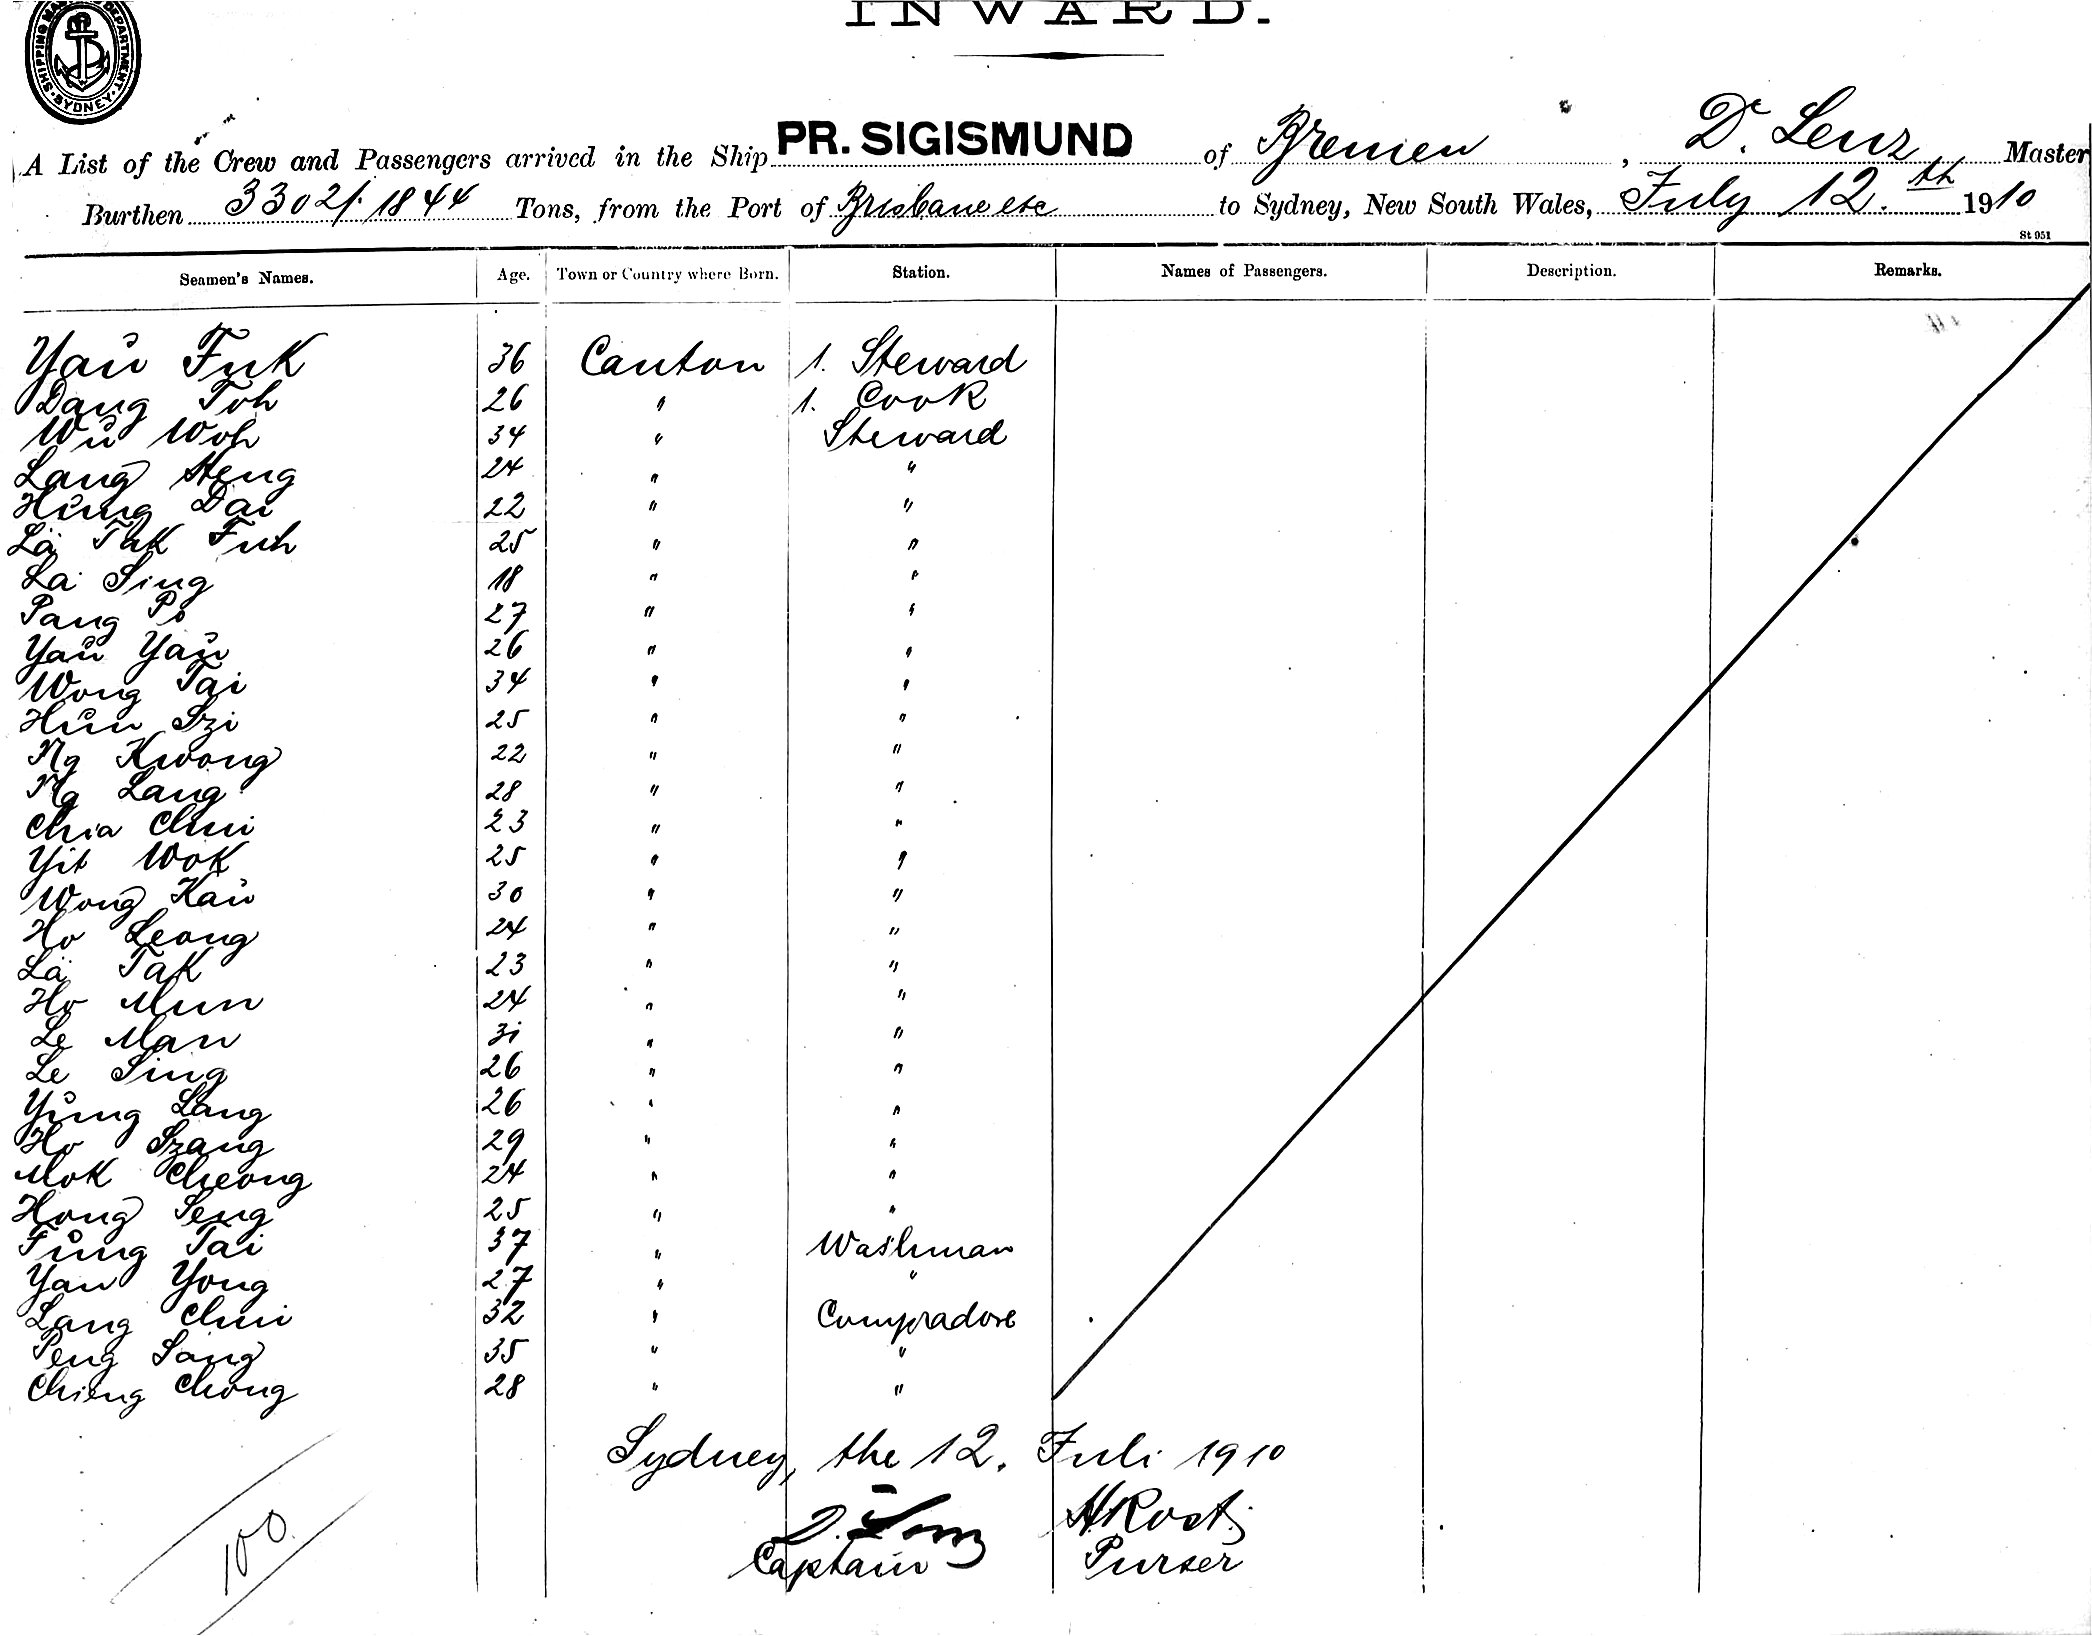 SHIPPING MA DEPARTMENT
SYDNEY
INWARD.
A List of the Crew and Passengers arrived in the Ship PR. SIGISMUND of Bremen, D. Lenz Master
Burthen 3302/1844 Tons, from the Port of Brisbane etc to Sydney, New South Wales, July 12.th 1910
St 951
Seamen's Names. Age. Town or Country where Born. Station. Names of Passengers. Description. Remarks.
Yaŭ Fuk 36 Canton 1. Steward
Dang Toh 26 " 1. Cook
Wŭ Woh 34 " Steward
Lang Heng 24 " "
Hŭng Dai 22 " "
Lä Tak Fuh 25 " "
La Sing 18 " "
Pang Po 27 " "
Yaŭ Yaŭ 26 " "
Wong Tai 34 " "
Hŭn Szi 25 " "
Ng Kwong 22 " "
Ng Lang 28 " "
Chia Chui 23 " "
Yit Wok 25 " "
Wong Kaŭ 30 " "
Ho Leong 24 " "
Lä Tak 23 " "
Ho Mun 24 " "
Le Man 31 " "
Le Sing 26 " "
Yŭng Lang 26 " "
Ho Szang 29 " "
Mok Cheong 24 " "
Hong Seng 25 " "
Fŭng Tai 37 " Washman
Yan Yong 27 " "
Lang Chui 32 " Compradore
Peng Sang 35 " "
Chieng Chong 28 " "
Sydney, the 12. Juli 1910
D. Lenz H Rost
Captain Purser
100